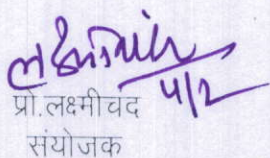 4/2
प्रो.लक्ष्मीचद
संयोजक